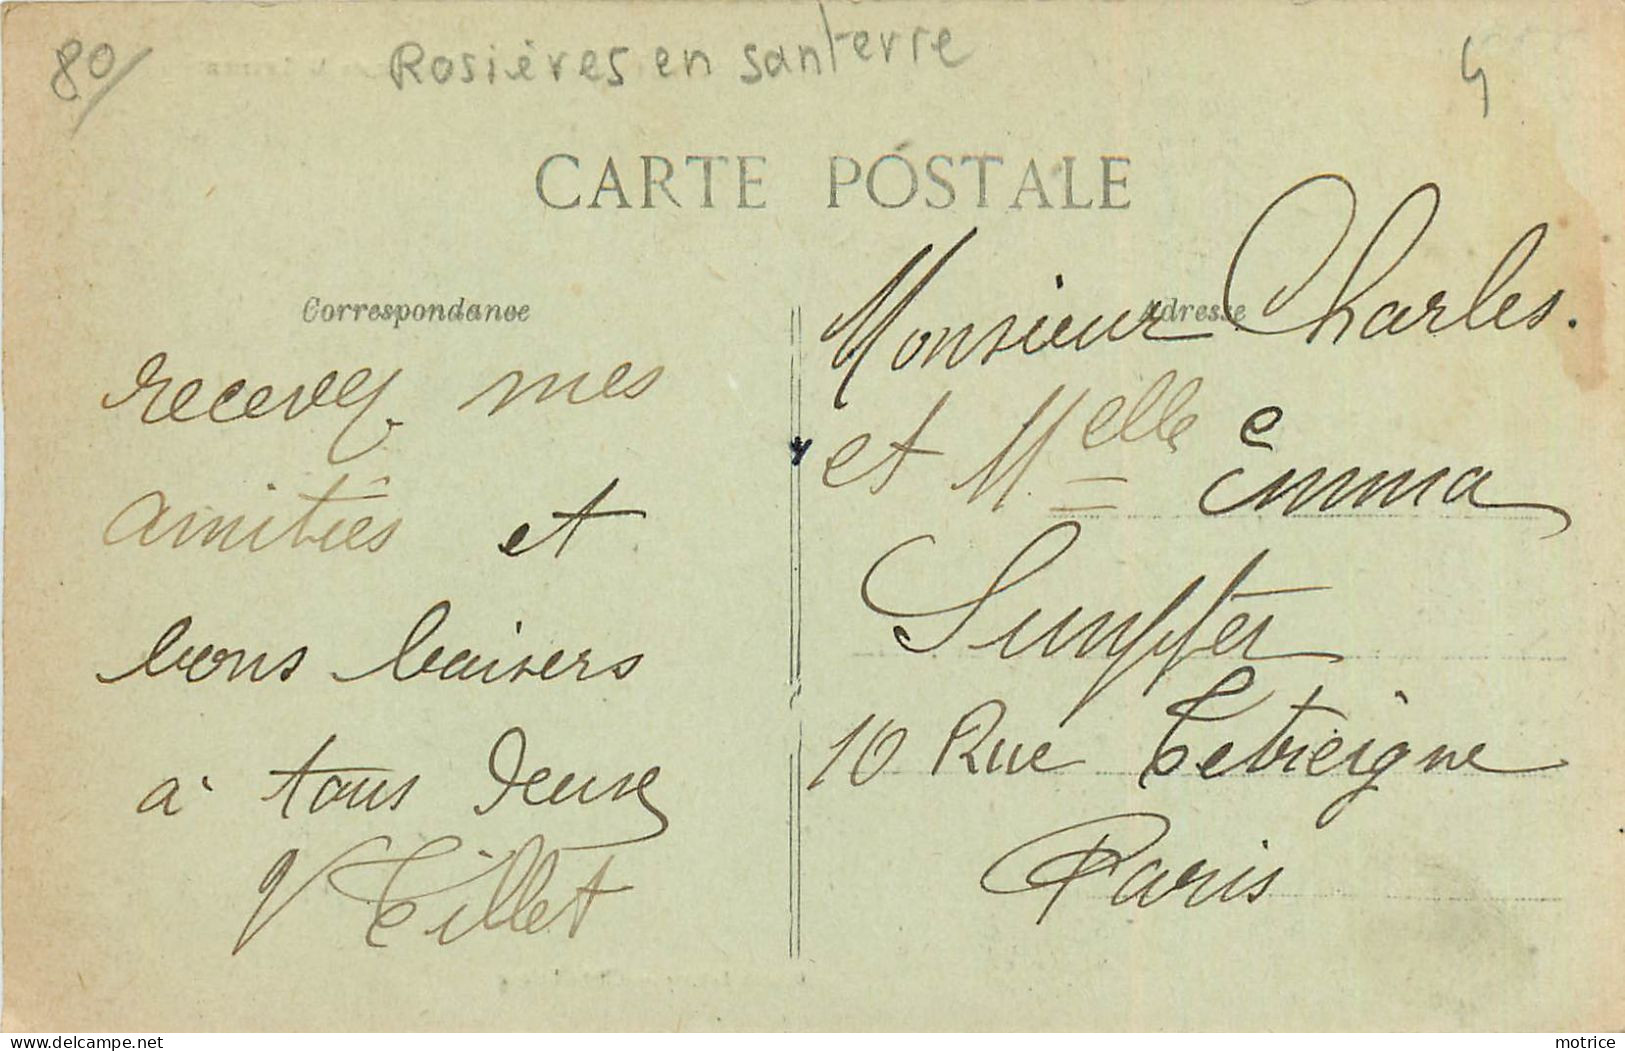 80/
Rosières en santerre
CARTE POSTALE
Correspondance
Adresse
recevez mes
amitiés et
bons baisers
à tous deux
V Tillet
Monsieur Charles.
et Melle Emma
10 Rue
Paris
delcampe.net
matrice